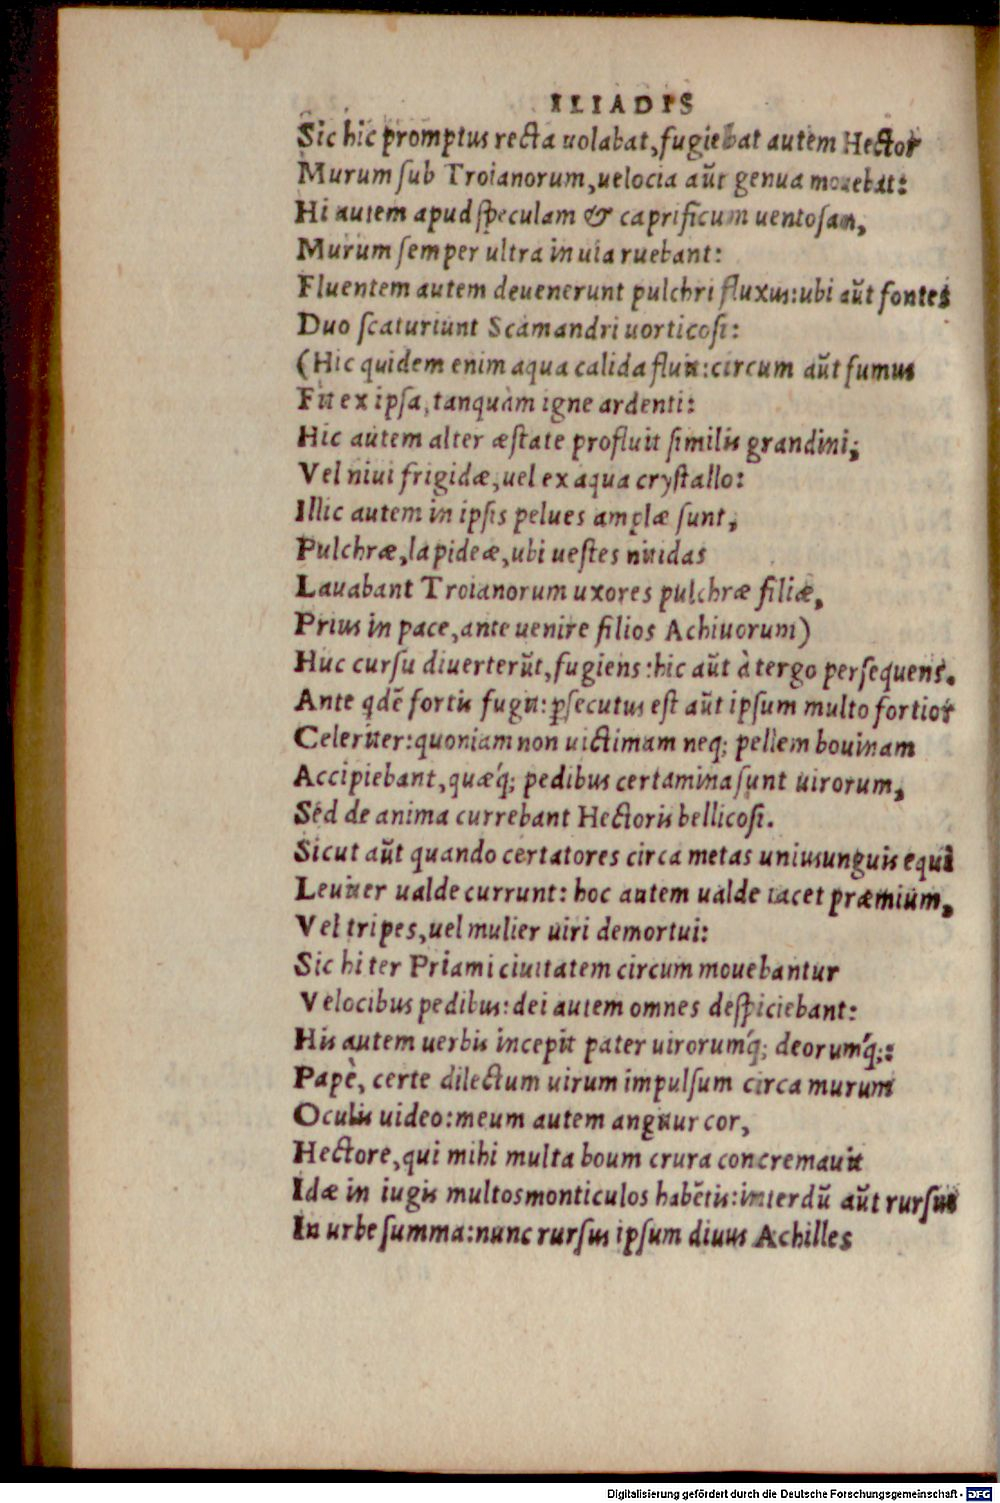 ILIADIS
Sic hic promptus recta uolabat, fugiebat autem Hector
Murum sub Troianorum, uelocia aũt genua mouebat:
Hi autem apud speculam & caprificum uentosam,
Murum semper ultra in uia ruebant:
Fluentem autem deuenerunt pulchri fluxus: ubi aũt fontes
Duo scaturiunt Scamandri uorticosi:
(Hic quidem enim aqua calida fluit: circum aũt fumus
Fit ex ipsa, tanquàm igne ardenti:
Hic autem alter æstate profluit similis grandini;
Vel niui frigidæ, uel ex aqua crystallo:
Illic autem in ipsis pelues amplæ sunt,
Pulchræ, lapideæ, ubi uestes nitidas
Lauabant Troianorum uxores pulchræ filiæ,
Prius in pace, ante uenire filios Achiuorum)
Huc cursu diuerterũt, fugiens: hic aũt à tergo persequens.
Ante qdẽ fortis fugit: ꝑsecutus est aũt ipsum multo fortior
Celeriter: quoniam non uictimam neq; pellem bouinam
Accipiebant, quæq́; pedibus certamina sunt uirorum,
Sed de anima currebant Hectoris bellicosi.
Sicut aũt quando certatores circa metas uniusunguis equi
Leuiter ualde currunt: hoc autem ualde iacet præmium,
Vel tripes, uel mulier uiri demortui:
Sic hi ter Priami ciuitatem circum mouebantur
Velocibus pedibus: dei autem omnes despiciebant:
His autem uerbis incepit pater uirorumq́; deorumq́;:
Papè, certe dilectum uirum impulsum circa murum
Oculis uideo: meum autem angitur cor,
Hectore, qui mihi multa boum crura concremauit
Idæ in iugis multosmonticulos habẽtis: interdũ aũt rursus
In urbe summa: nunc rursus ipsum diuus Achilles
Digitalisierung gefördert durch die Deutsche Forschungsgemeinschaft - DFG